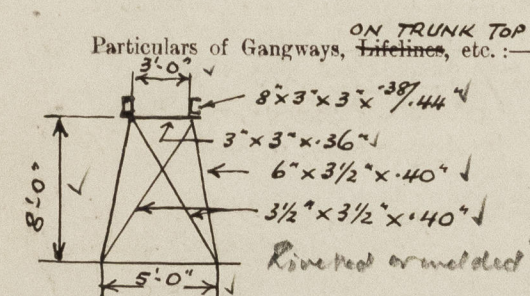 ON TRUNK TOP
Particulars of Gangways, Lifelines, etc. :—
3'-0"
8"x3"x3"x.38/.44"
3"x3"x.36"
6"x3½"x.40"
8'-0"
3½"x3½"x.40"
Riveted or welded
5'-0"